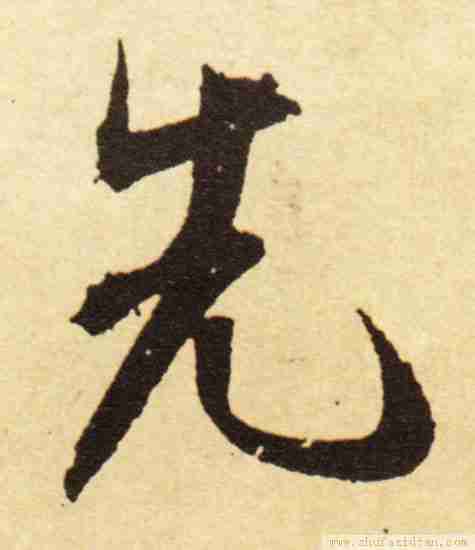 先
www.shufazidian.com